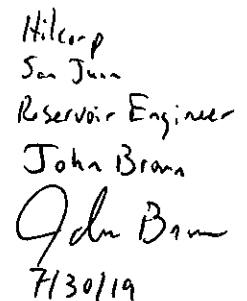 Hilcorp
San Juan
Reservoir Engineer
John Brown
John Brown
7/30/19